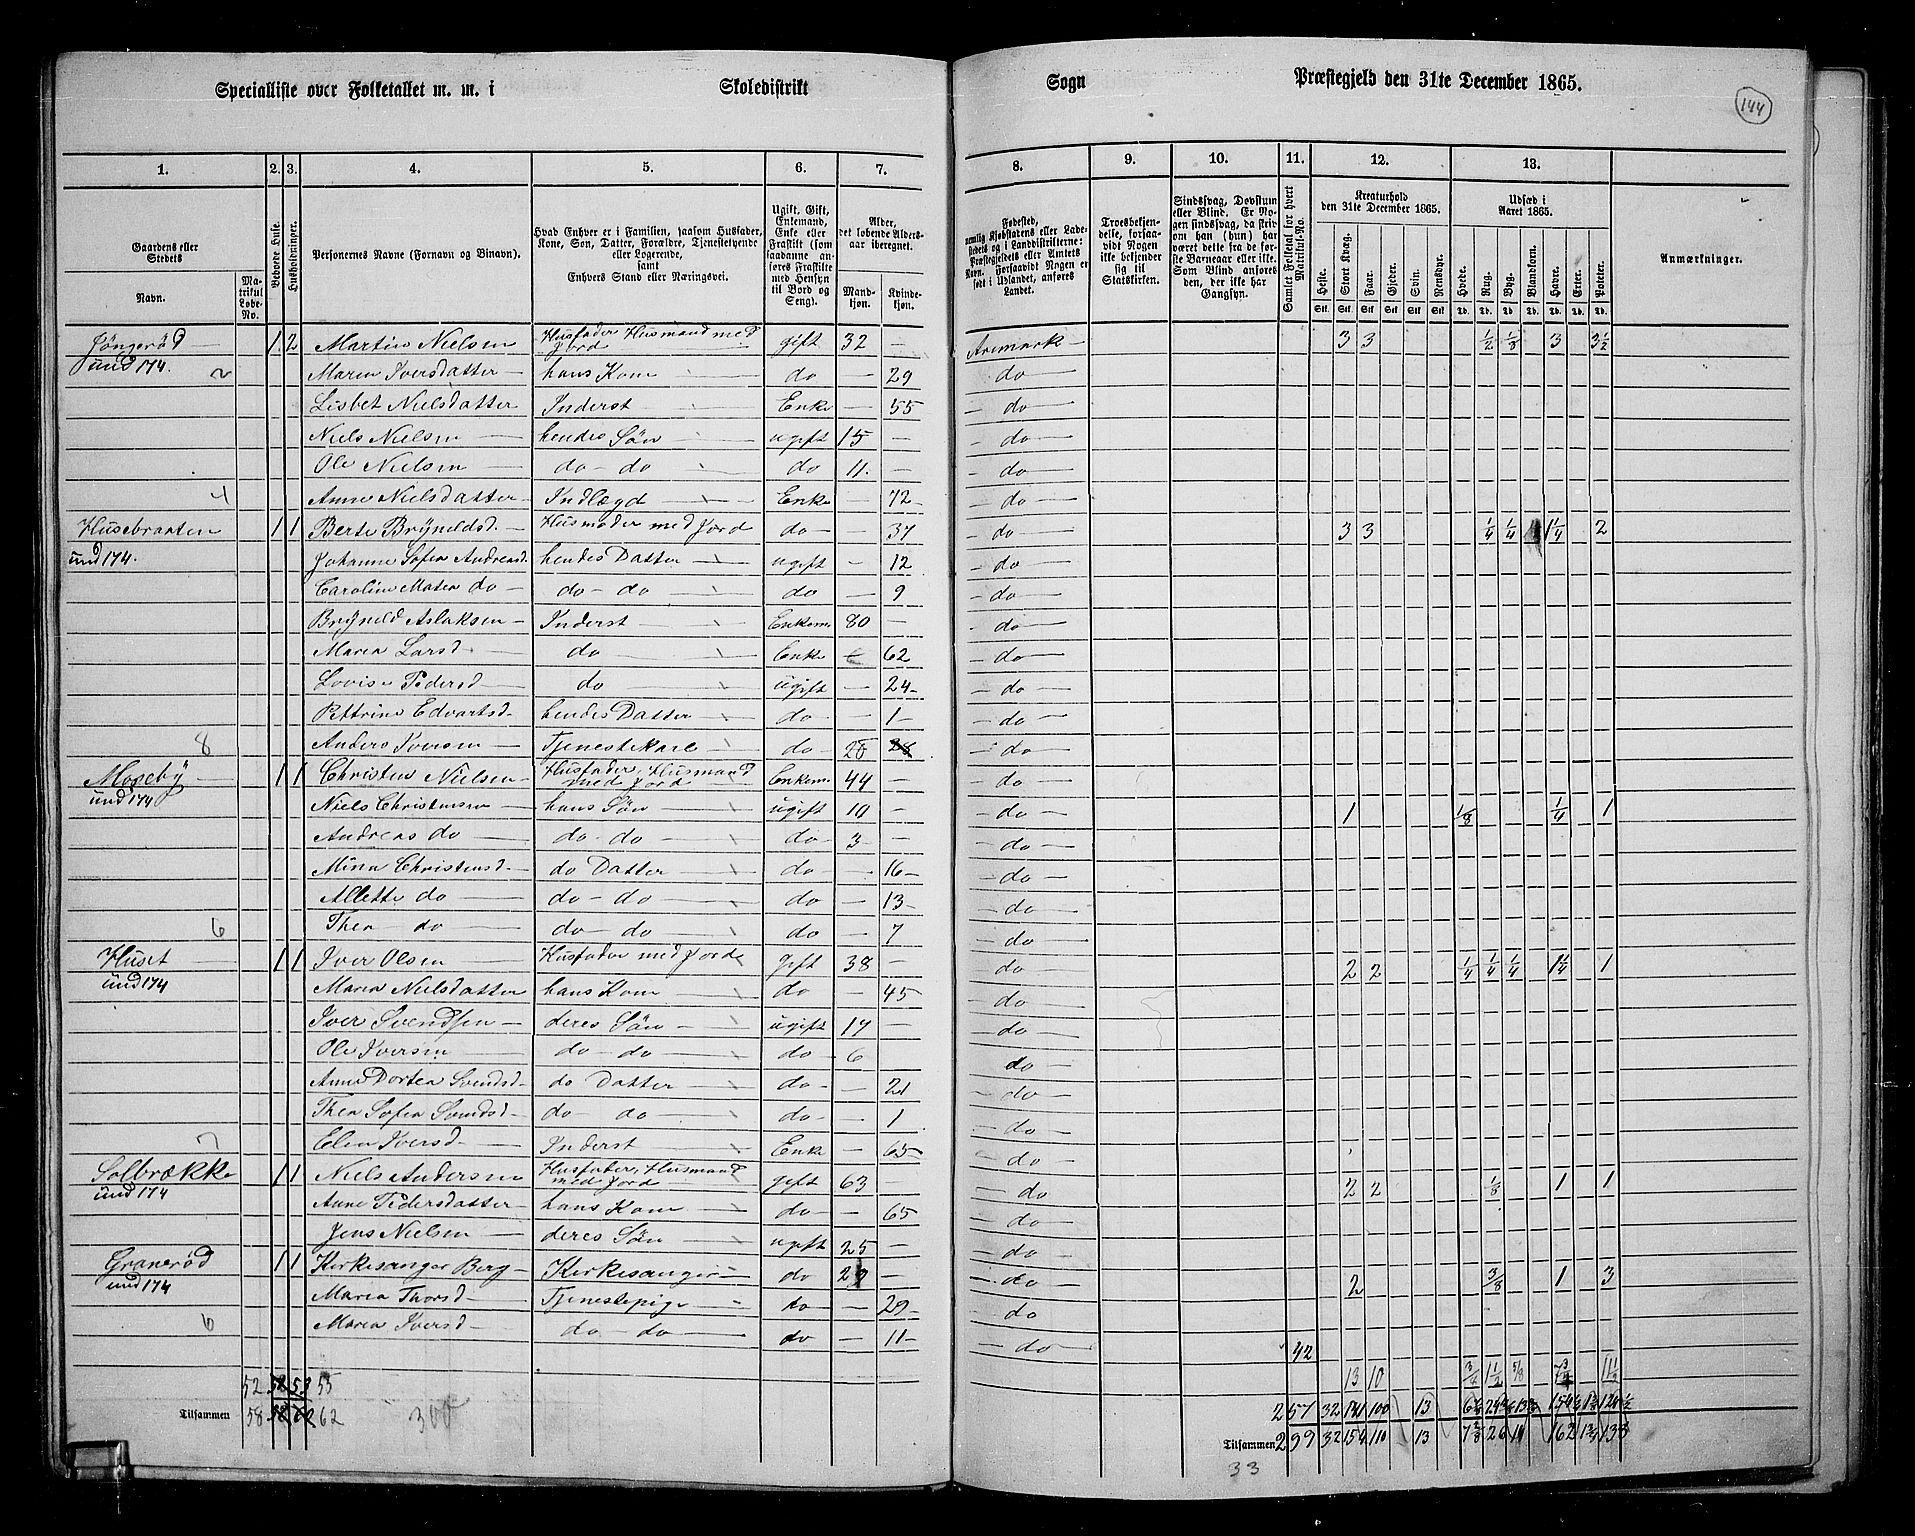 Specialliste over Folketallet m. m. i Skoledistrikt Sogn Præstegjeld den 31te December 1865.
144
1. 2. 3. 4. 5. 6. 7. 8. 9. 10. 11. 12. 13.
Gaardens eller Stedets
Navn.
Matrikul Løbe-No.
Beboede Huse.
Husholdninger.
Personernes Navne (Fornavn og Binavn).
Hvad Enhver er i Familien, saasom Husfader, Kone, Søn, Datter, Forældre, Tjenestetyende eller Logerende, samt Enhvers Stand eller Næringsvei.
Ugift, Gift, Enkemand, Enke eller Fraskilt (som saadanne anføres Fraskilte med Hensyn til Bord og Seng).
Alder, det løbende Aldersaar iberegnet.
Mandkjøn.
Kvindekjøn.
Fødested, nemlig Kjøbstadens eller Ladestedets og i Landdistrikterne: Præstegjeldets eller Amtets Navn. Forsaavidt Nogen er født i Udlandet, anføres Landet.
Troesbekjendelse, forsaavidt Nogen ikke bekjender sig til Statskirken.
Sindssvag, Døvstum eller Blind. Er Nogen sindssvag, da skrives om han (hun) har været dette fra de første Barneaar eller ikke. Som Blind anføres den, der ikke har Gangsyn.
Samlet Folketal for hvert Matrikul-No.
Kreaturhold den 31te December 1865.
Heste. Stort Kvæg. Faar. Gjeder. Svin. Rensdyr.
Udsæd i Aaret 1865.
Hvede. Rug. Byg. Blandkorn. Havre. Erter. Poteter.
Anmærkninger.
Jöngeröd 1 2 Martin Nielsen Husfader Husmand med Jord gift 32 — Aremark 3 3 1/2 1/8 3 3 1/2
und 174. 2 Maren Iversdatter hans Kone do — 29 do
Lisbet Nielsdatter Inderst Enke — 55 do
Niels Nielsen hendes Sön ugift 15 — do
Ole Nielsen do - do do 11. — do
4 Anne Nielsdatter Indlægd Enke — 72 do
Husebraaten 1 1 Berte Brÿnildsd. Husmoder med Jord do — 37 do 3 3 1/4 1/4 1 1/4 2
und 174. Johanne Sofia Andreasd. hendes Datter ugift — 12 do
Caroline Maten do do - do do — 9 do
Brÿnild Aslaksen Inderst Enkem. 80 — do
Maren Larsd do Enke — 62 do
Lovise Pedersd do ugift — 24 do
Pettrine Edvartsd. hendes Datter do — 1 do
8 Anders Iversen Tjenestekarl do 20 28 do
Moseby 1 1 Christen Nielsen Husfader, Husmand med Jord Enkem. 44 — do
und 174 Niels Christensen hans Sön ugift 10 — do 1 1/8 1/4 1
Andreas do do - do do 3 — do
Mina Christensd. do Datter do — 16 do
Allette do do - do do — 13 do
6 Thea do do - do do — 7 do
Huset 1 1 Iver Olsen Husfader med Jord gift 38 — do 2 2 1/4 1/4 1/4 1 1/4 1
und 174 Maren Nielsdatter hans Kone do — 45 do
Iver Svendsen deres Sön ugift 17 — do
Ole Iversen do - do do 6 do
Anne Dortea Svendsd. do Datter do — 21 do
Thea Sofia Svendsd do do do — 1 do
7 Elen Iversd. Inderst Enke — 65 do
Solbrække 1 1 Niels Andersen Husfader, Husmand med Jord gift 63 — do 2 2 1/8 1 1
und 174 Anne Pedersdatter hans Kone do — 65 do
Jens Nielsen deres Sön ugift 25 — do
Graneröd 1 1 Kirkesanger Berg Kirkesanger do 29 — do 2 3/8 1 3
und 174 Maren Thorsd Tjenestepige do — 29 do
6 Maren Iversd do - do do — 11 do
42
52 55 13 10 3/4 1 1/2 5/8 7 3/4 11 1/2
257 32 141 100 13
Tilsammen 58 62 300 Tilsammen 299 32 154 110 13 162 133
33